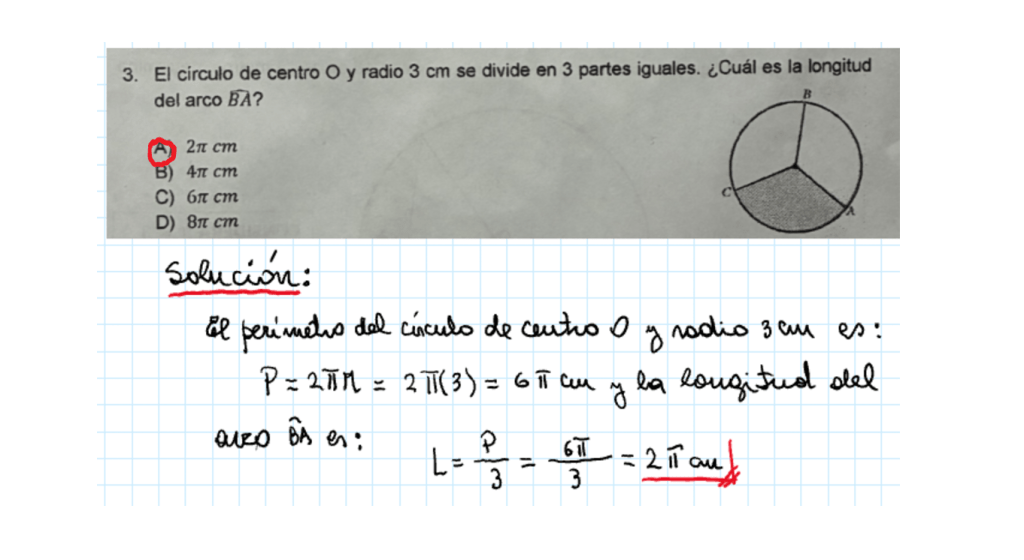 3. El círculo de centro O y radio 3 cm se divide en 3 partes iguales. ¿Cuál es la longitud
del arco B͡A?
A) 2π cm
B) 4π cm
C) 6π cm
D) 8π cm
B
C
A
Solución:
El perímetro del círculo de centro O y radio 3 cm es:
P = 2πr = 2π(3) = 6π cm y la longitud del
arco B͡A es:
L = P/3 = 6π/3 = 2π cm